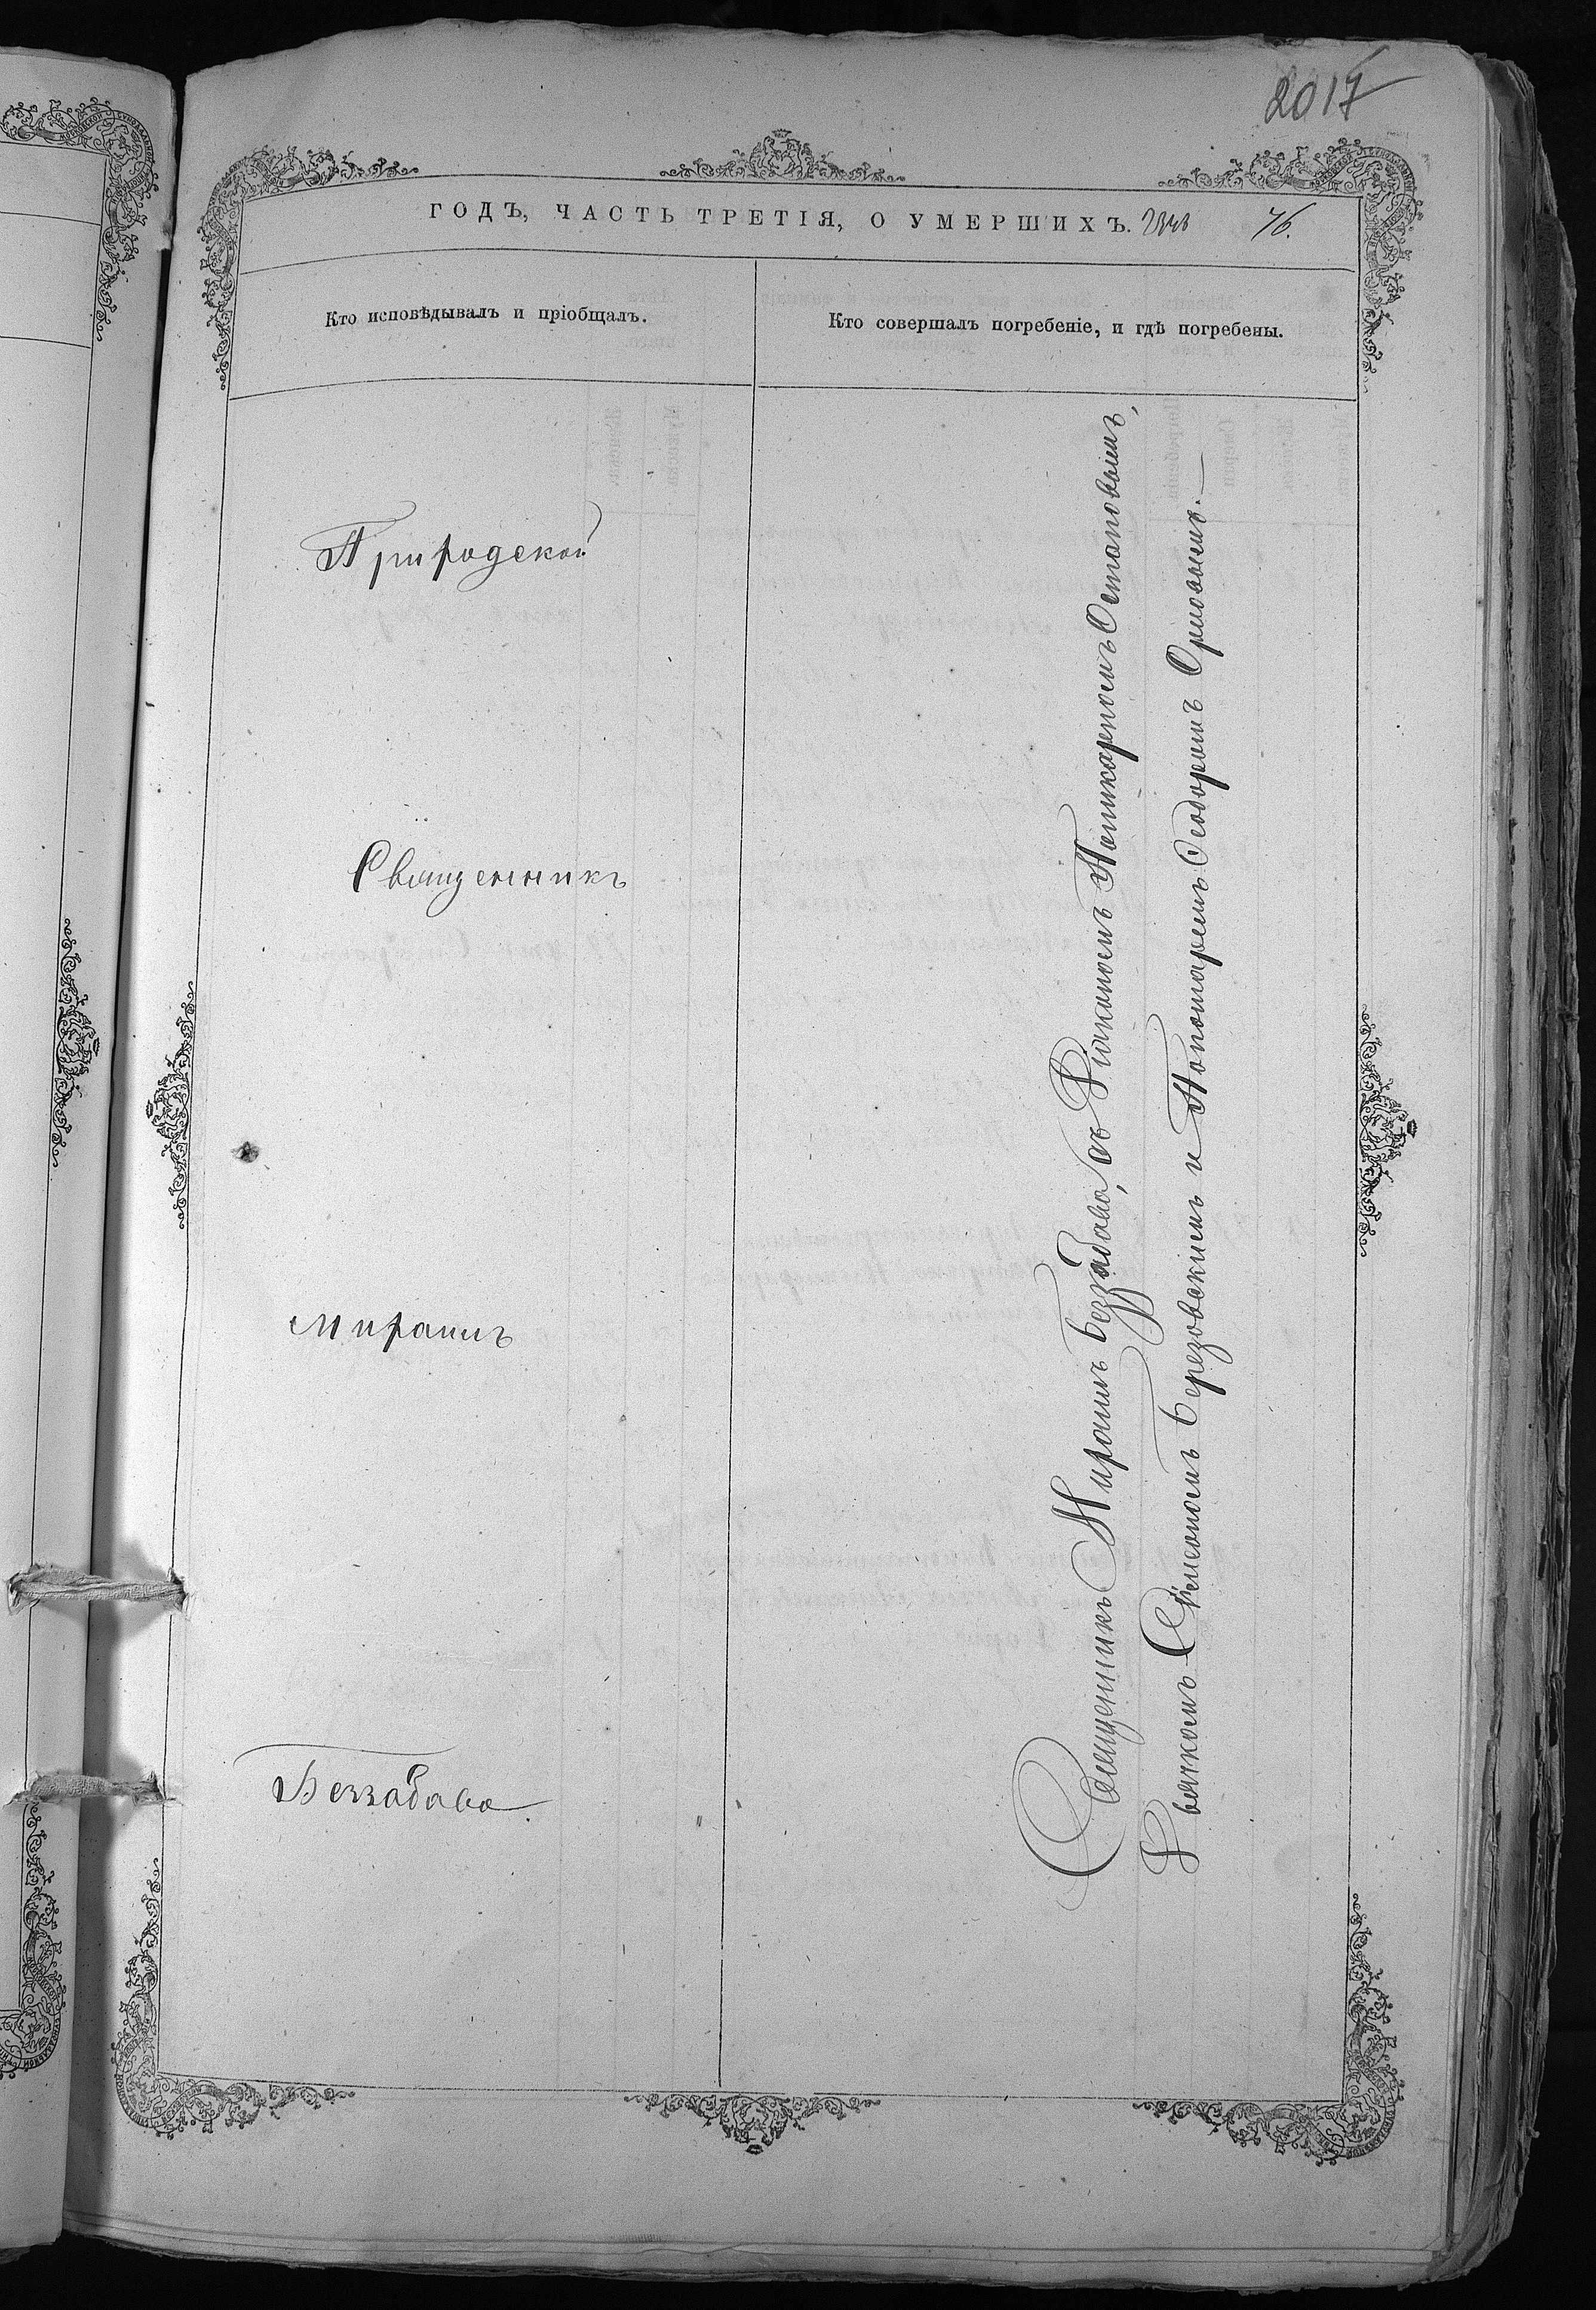 2017
ГОДЪ, ЧАСТЬ ТРЕТІЯ, О УМЕРШИХЪ. 76.
Кто исповѣдывалъ и пріобщалъ.
Кто совершалъ погребеніе, и гдѣ погребены.
Приходской
Священникъ
Миронъ
Беззабава
Священникъ Миронъ Беззабава, съ Діакономъ Поликарпомъ Остаповымъ,
Дьячкомъ Симеономъ Березовскимъ и Пономаремъ Ѳеодоромъ Орловымъ.—